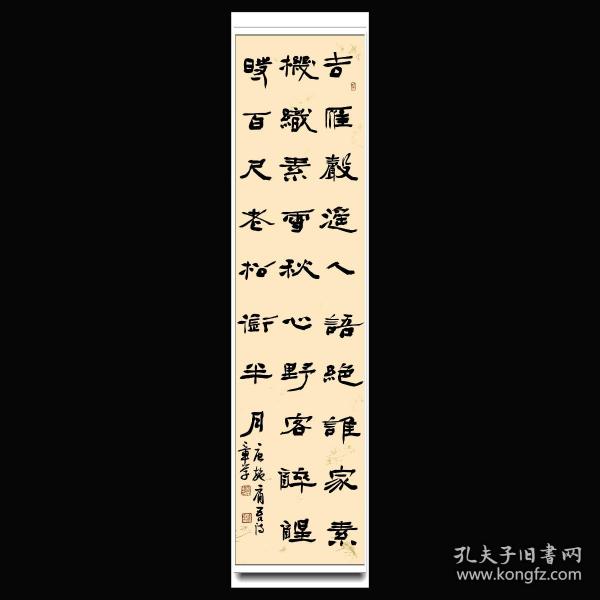 去雁聲遥人語絕誰家素
機織素雪秋心野客醉醒
時百尺老松銜半月
唐施肩吾詩
章学
孔夫子旧書网
www.kongfz.com